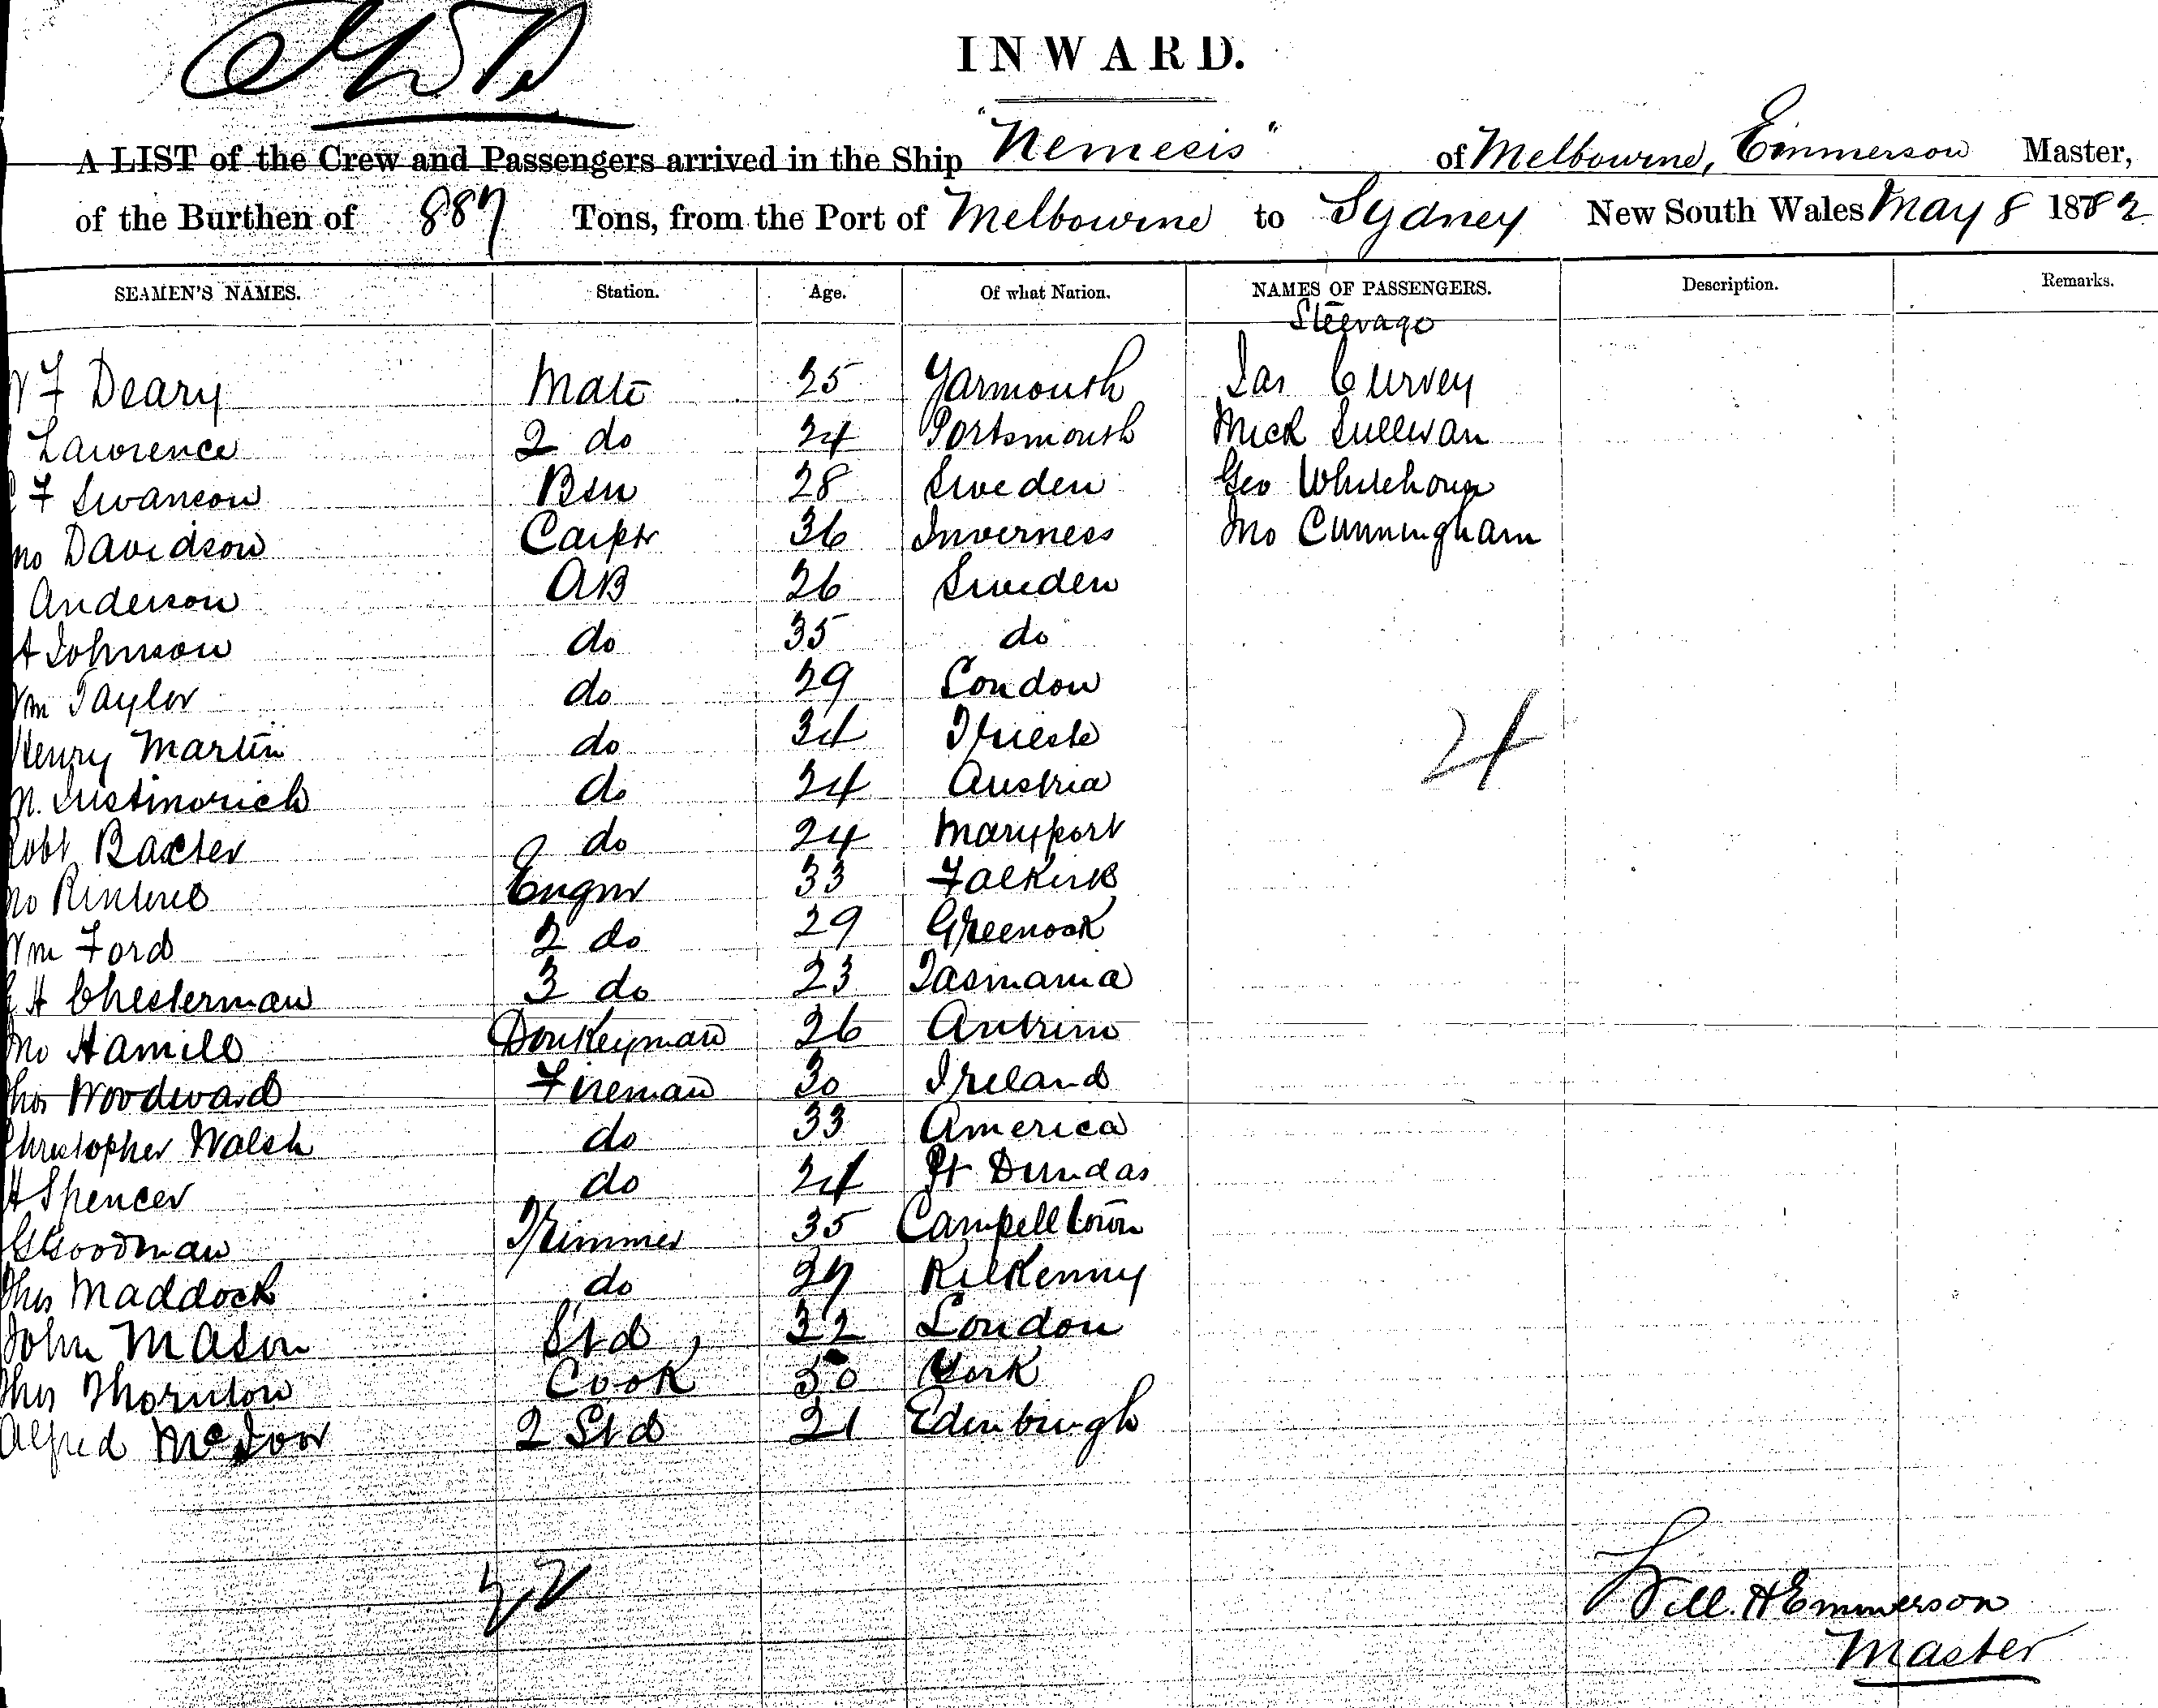 INWARD.
A LIST of the Crew and Passengers arrived in the Ship "Nemesis" of Melbourne, Emmerson Master,
of the Burthen of 887 Tons, from the Port of Melbourne to Sydney New South Wales May 8 1882
SEAMEN'S NAMES. Station. Age. Of what Nation. NAMES OF PASSENGERS. Description. Remarks.
Steerage
F Deary Mate 25 Yarmouth Jas Curvey
Lawrence 2 do 24 Portsmouth Mick Sullivan
F Swanson Bsn 28 Sweden Geo Whitehouse
Jno Davidson Carptr 36 Inverness Jno Cunningham
Anderson AB 26 Sweden
A Johnson do 35 do
Wm Taylor do 29 London
Henry Martin do 34 Trieste
do 24 Austria
Robt Baxter do 24 Maryport
Jno Engnr 33 Falkirk
Wm Ford 2 do 29 Greenock
H Chesterman 3 do 23 Tasmania
Jno Hamill Donkeyman 26 Antrim
Thos Woodward Fireman 30 Ireland
Christopher Walsh do 33 America
H Spencer do 24 Pt Dundas
G Goodman Trimmer 35 Campelltown
Thos Maddock do 27 Kilkenny
John Mason Std 32 London
Thos Thornton Cook 30 York
Alfred 2 Std 21 Edinburgh
4
22
Will. H Emmerson
Master